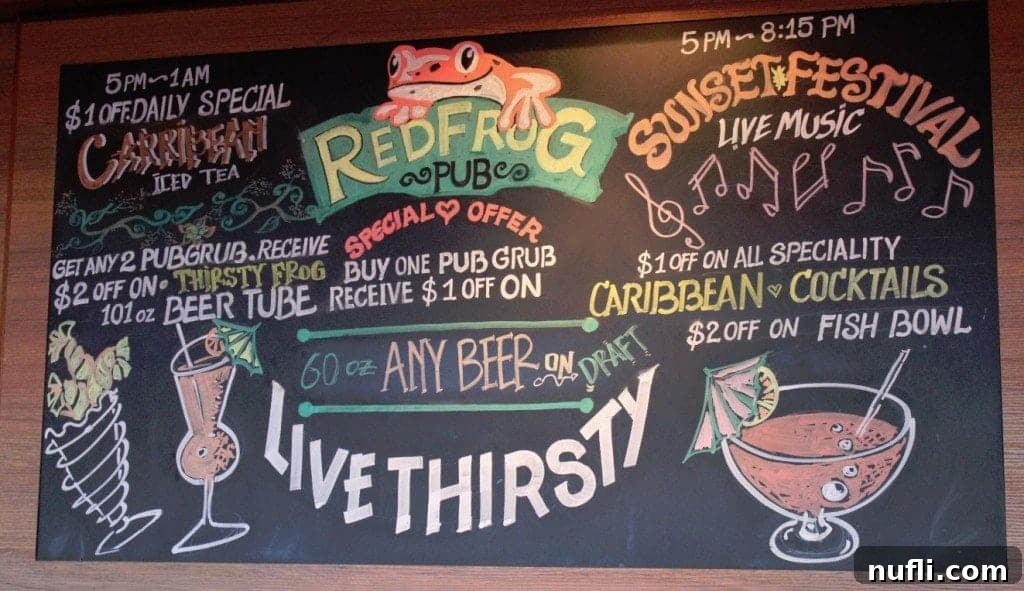 5PM~1AM
$1 OFF.DAILY SPECIAL
CARRIBEAN
ICED TEA
GET ANY 2 PUBGRUB.RECEIVE
$2 OFF ON• THIRSTY FROG
101 oz BEER TUBE
REDFROG
PUB
SPECIAL♡ OFFER
BUY ONE PUB GRUB
RECEIVE $1 OFF ON
60 oz ANY BEER ON DRAFT
LIVE THIRSTY
5PM~8:15 PM
SUNSET*FESTIVAL
LIVE MUSIC
$1 OFF ON ALL SPECIALITY
CARIBBEAN ♥ COCKTAILS
$2 OFF ON FISH BOWL
nufli.com